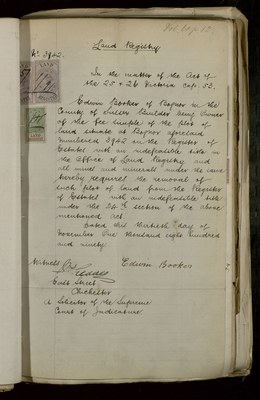 Land Registry
No. 3942.
In the matter of the Act of
the 25 & 26 Victoria Cap. 53.
Edwin Booker of Bognor in the
County of Sussex Builder being Owner
of the fee simple of the plot of
land situate at Bognor aforesaid
numbered 3942 in the Register of
Estates with an indefeasible title in
the Office of Land Registry and
all mines and minerals under the same
hereby requires the removal of
such plot of land from the Register
of Estates with an indefeasible title
under the 34th section of the above
mentioned Act
Dated this thirtieth day of
November One thousand eight hundred
and ninety.
Witness
Edwin Booker
East Street
Chichester
A Solicitor of the Supreme
Court of Judicature.